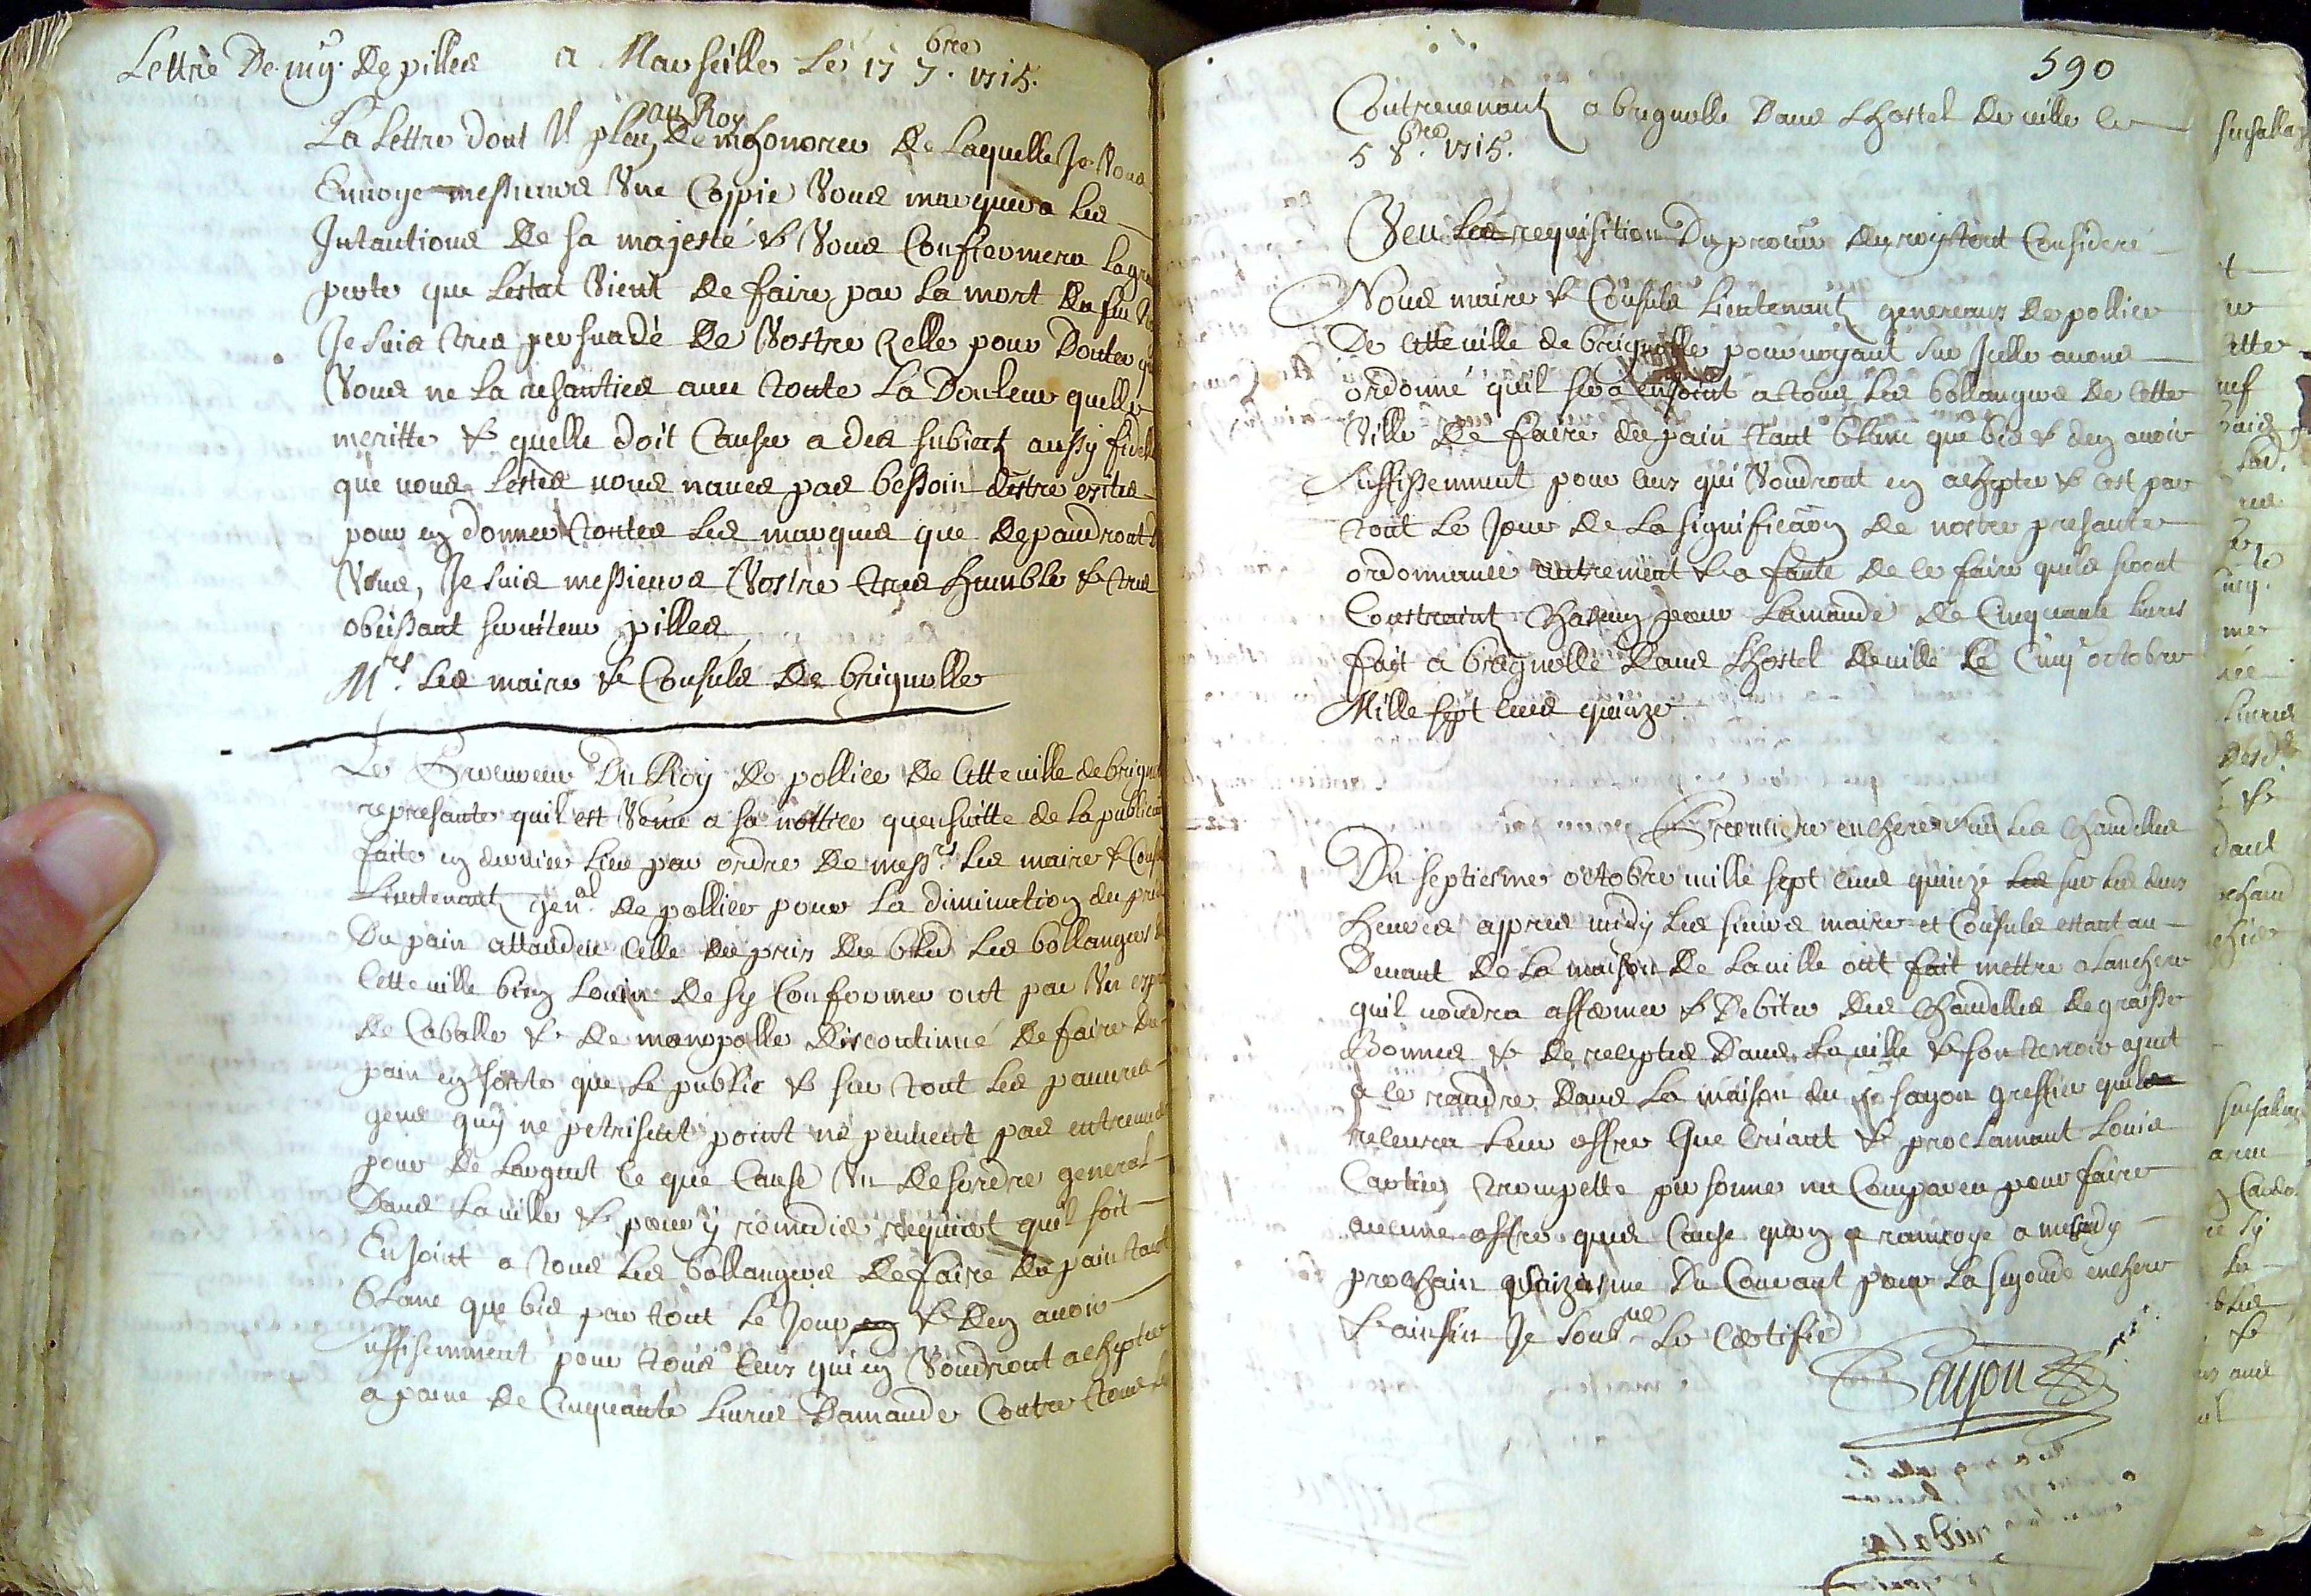 Lettre De mr. De pilles a Marseille Le 17 7.bre 1715.
La Lettre dont Il pleu au Roy De mhonorer De Laquelle Je Vous
Envoye messieurs Vne Coppie Vous marquera Les
Intantions De sa majesté & Vous Conffermera La gr
perte que Lestat Vient De faire par La mort Du feu
Je suis tres persuadé De Vostre Zelle pour Douter q
Vous ne La resanties avec toute La Douleur quelle
meritte & quelle doit Causer a des subiects aussy fidell
que vous Lestes vous naves pas bessoin destre exités
pour en donner toutes Les marques que Depandront d
Vous, Je suis messieurs Vostre tres humble & tres
obeissant serviteur pilles
Mrs. Les maire & Consuls De brignolle
Le Procureur Du Roy De pollice De Cette ville de brigno
represante quil est Venu a sa nottice quensuitte de La publica
faite en dernier Lieu par ordre De messrs. Les maire & Cons
Lieutenants genal. De pollice pour La diminution du pris
Du pain attandeu Celle du pris Du bled Les bollangers d
Cette ville bien Louin De sy Conformer ont par Vn esp
De Caballe & De monopolle Discontinué De faire Du
pain en sorte que Le public & sur tout Les pauvres
gens quy ne petrisent point ne peuvent pas entreuver
pour De Largent Ce que Cause Vn Desordre general
Dans La ville & pour ÿ remedier requiert quil soit
Enjoint a tous Les bollangers De faire Du pain tant
blanc que bis par tout Le Jour en & Den avoir
uffisemment pour tous Ceux qui en Voudront achepter
a paine De Cinquante Livres Damande Contre tous Le
590
Contrevenants a brignolle Dans Lhostel De ville le
5 8.bre 1715.
Veu Les requisition Du procur du roy tout Consideré
Nous maire & Consuls Lieutenants generaux De pollice
De Cette ville de brignolle pourvoyant sur Icelle avons
ordonné quil sera enjoint a tous Les bollangers De Cette
Ville De faire du pain tant blanc que bis & den avoir
suffissemment pour Ceux qui Voudront en achepter & cest par
tout Le Jour De La signification De nostre presante
ordonnance autrement & a faute De le faire quils seront
Constraints Chascun pour Lamande De Cinquante Livres
fait a brignolle Dans Lhostel De ville Le Cinq octobre
Mille sept Cens quinze
Premiere enchere sur Les Chandelles
Du septiesme octobre mille sept Cens quinze Les sur Les deux
heures appres midy Les sieurs maire et Consuls estant au
Devant De La maison De La ville ont fait mettre a Lanchere
quil voudra affermer & Debiter Des Chandelles De graisse
Bonnes & De receptes Dans La ville & son terroir ayent
a le randre Dans La maison du sr sayon greffier quil
recevra Leur offre Que Criant & proclamant Louis
Cartier trompette personne na Comparu pour faire
aucune offre que Cause quon a ranvoye a mecredy
prochain Du Courant pour La segonde enchere
& ainsin Je soubne Le Certifie
Sayon